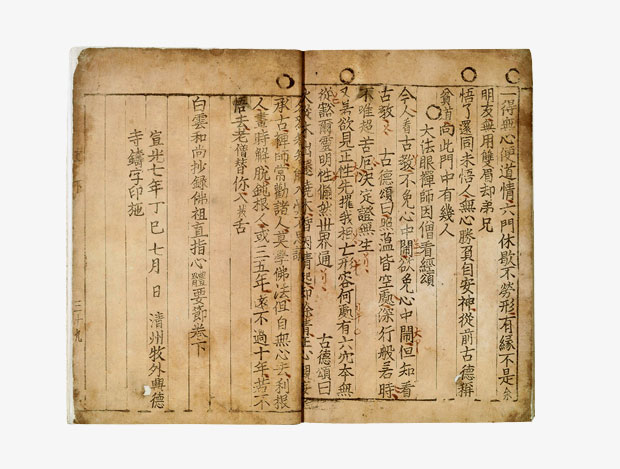 一得無心便道情六門休歇不勞形有緣不是余
朋友無用雙眉却弟兄
悟了還同未悟人無心勝負自安神從前古德稱
貧道向此門中有幾人
大法眼禪師因僧看經頌
今人看古教不免心中鬧欲免心中鬧但知看
古教 古德頌曰 蘊皆空處深行般若時
不唯超苦厄決定證無生
又 欲見正性先摧我相亡形容何處有六 本無
從豁爾靈明性 然世界通 古德頌曰
承古禪師常勸諸人莫學佛法但自無心去利根
人晝時解脫鈍根人或三五年遠不過十年若不
悟去老僧替你入拔舌
白雲和尚抄錄佛祖直指心體要節卷下
宣光七年丁巳七月 日 清州牧外興德
寺鑄字印施
下
三十九